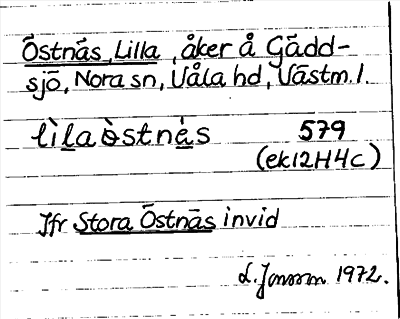 Östnäs, Lilla, åker å Gädd-
sjö, Nora sn, Våla hd, Västm. l.
lìlaòstnàs 579
(ek12H4c)
Jfr Stora Östnäs invid
L. Jonsson 1972.